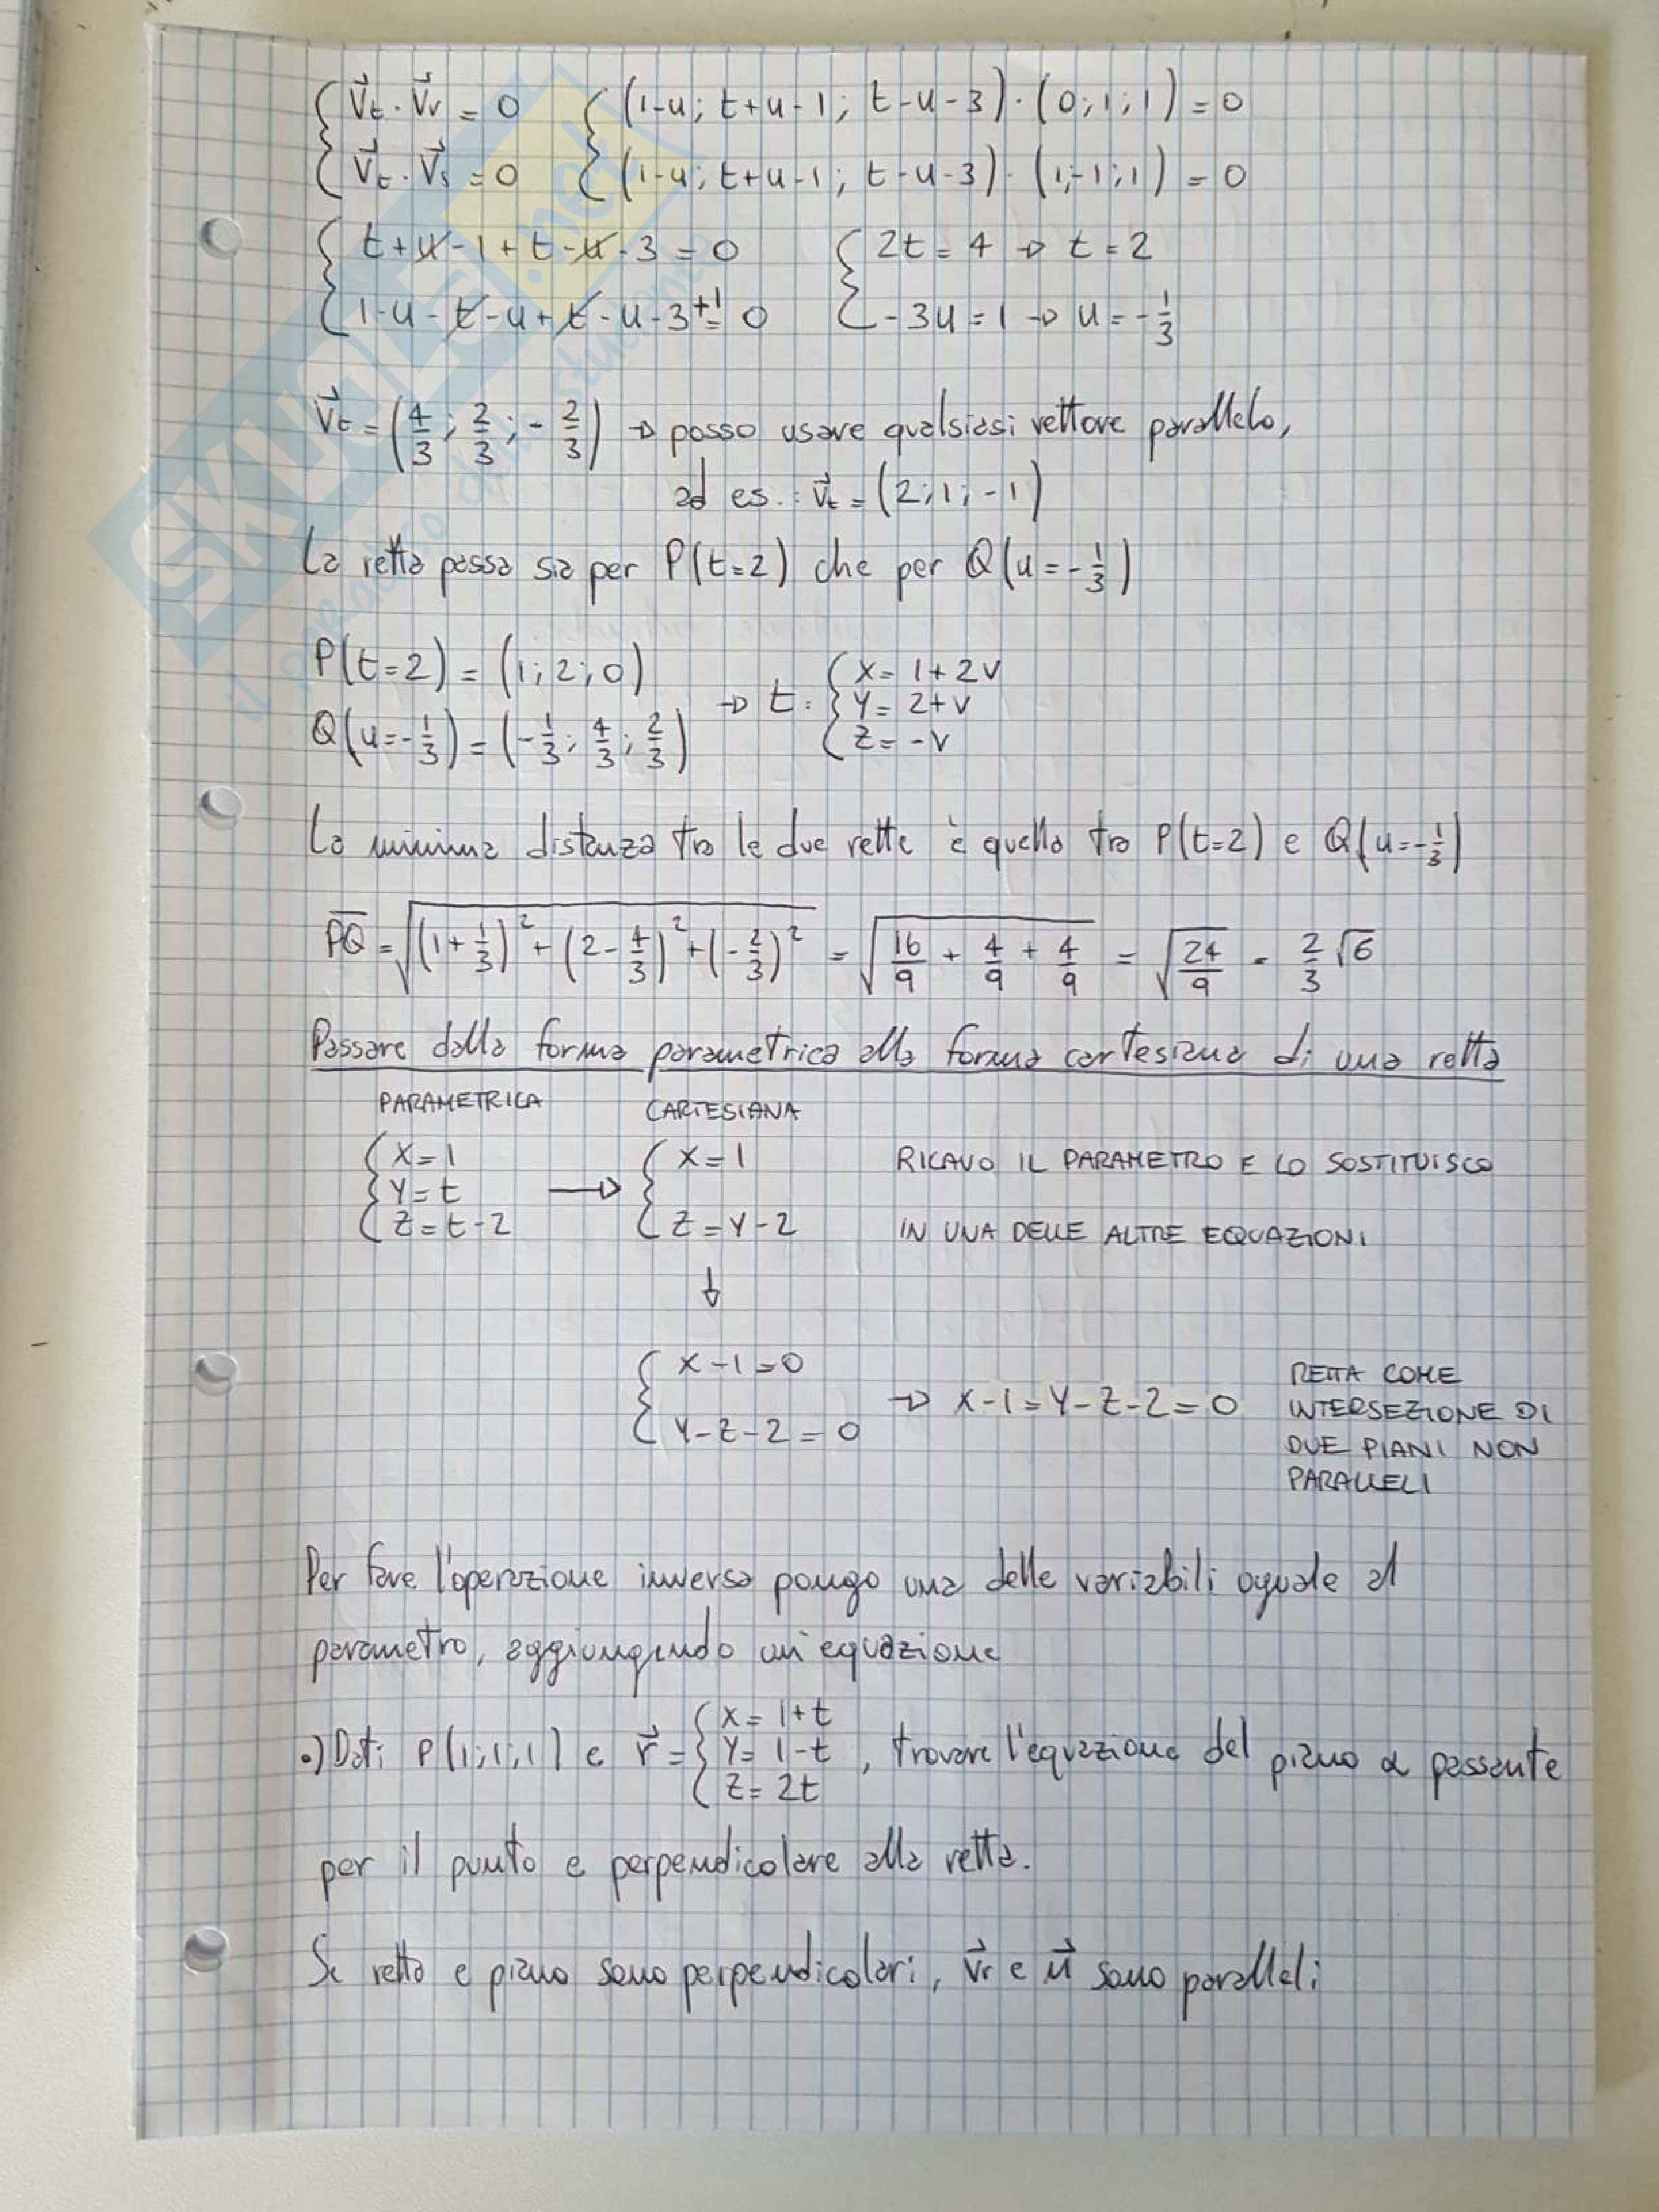 { V⃗t · V⃗r = 0 { (1-u; t+u-1; t-u-3) · (0;1;1) = 0
{ V⃗t · V⃗s = 0 { (1-u; t+u-1; t-u-3) · (1;-1;1) = 0
{ t+u-1+t-u-3 = 0 { 2t = 4 → t = 2
{ 1-u-t-u+t-u-3+1 = 0 { -3u = 1 → u = -1/3
V⃗t = (4/3; 2/3; -2/3) → posso usare qualsiasi vettore parallelo,
ad es.: V⃗t = (2; 1; -1)
La retta passa sia per P(t=2) che per Q(u=-1/3)
P(t=2) = (1; 2; 0)
Q(u=-1/3) = (-1/3; 4/3; 2/3)
→ t: { x = 1+2v
{ y = 2+v
{ z = -v
La minima distanza tra le due rette è quella tra P(t=2) e Q(u=-1/3)
PQ = √((1+1/3)² + (2-4/3)² + (-2/3)²) = √(16/9 + 4/9 + 4/9) = √(24/9) = 2/3 √6
Passare dalla forma parametrica alla forma cartesiana di una retta
PARAMETRICA CARTESIANA
{ x=1 { x=1 RICAVO IL PARAMETRO E LO SOSTITUISCO
{ y=t →
{ z=t-2 { z=y-2 IN UNA DELLE ALTRE EQUAZIONI
↓
{ x-1=0
{ y-z-2=0
→ x-1=y-z-2=0
RETTA COME
INTERSEZIONE DI
DUE PIANI NON
PARALLELI
Per fare l'operazione inversa pongo una delle variabili uguale al
parametro, aggiungendo un'equazione
•) Dati P(1;1;1) e r⃗ = { x = 1+t
{ y = 1-t , trovare l'equazione del piano α passante
{ z = 2t
per il punto e perpendicolare alla retta.
Se retta e piano sono perpendicolari, V⃗r e n⃗ sono paralleli